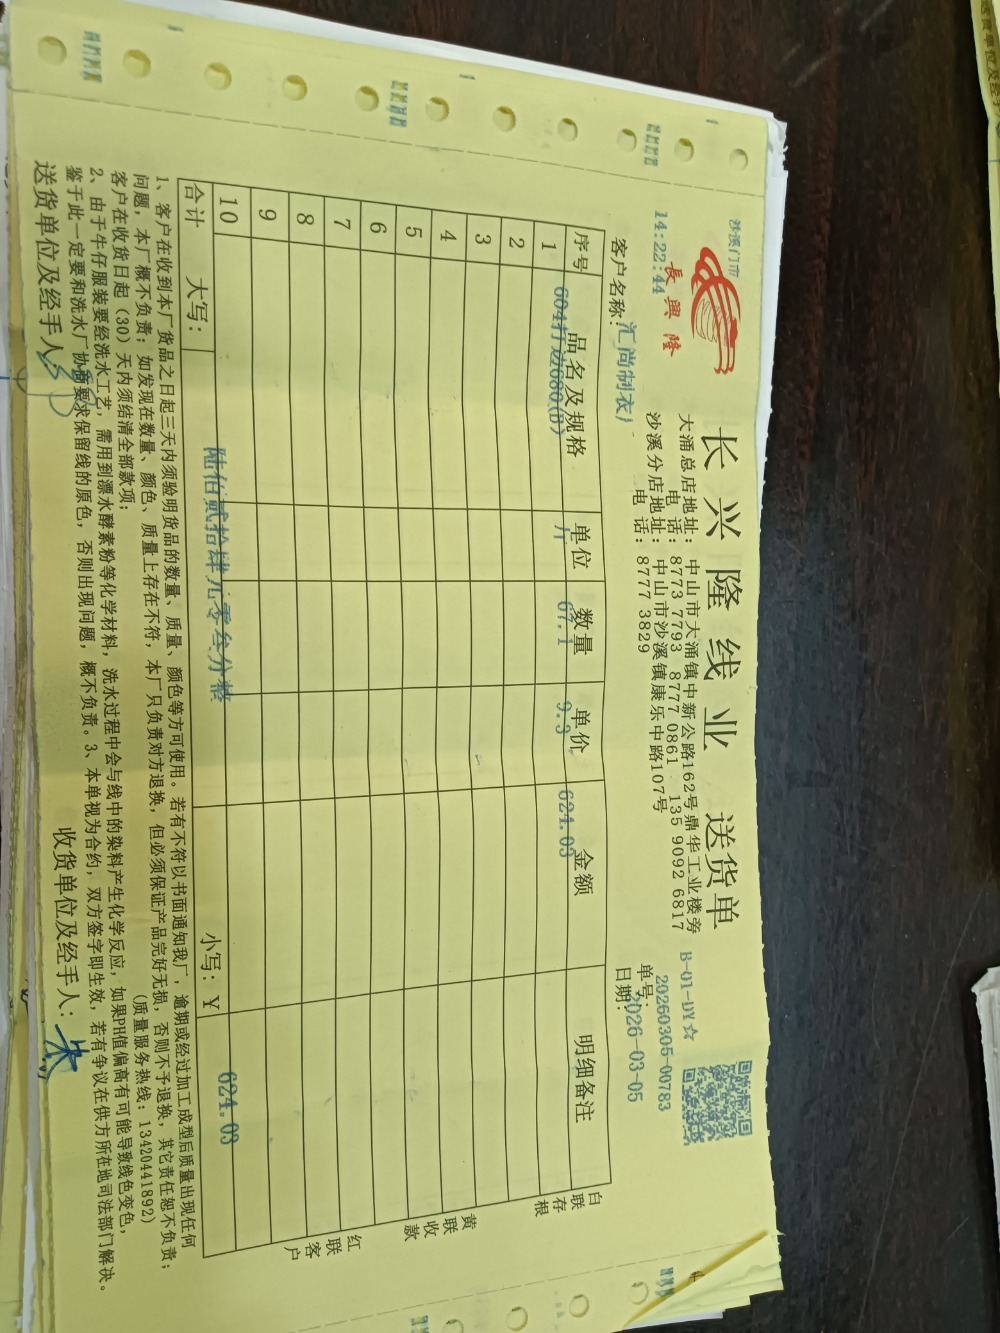 沙溪门市
長興隆
14:22:44
长兴隆线业 送货单
B-01-DY☆
大涌总店地址：中山市大涌镇中新公路162号鼎华工业楼旁
电 话：8773 7793 8777 0861 135 9092 6817
沙溪分店地址：中山市沙溪镇康乐中路107号
电 话：8777 3829
单号：20260305-00783
客户名称：汇尚制衣厂
日期：2026-03-05
序号 品名及规格 单位 数量 单价 金额 明细备注
1 604打边680(B) 斤 67.1 9.3 624.03
2
3
4
5
6
7
8
9
10
合计 大写：陆佰贰拾肆元零叁分整 小写：¥ 624.03
白联存根
黄联收款
红联客户
1、客户在收到本厂货品之日起三天内须验明货品的数量、质量、颜色等方可使用。若有不符以书面通知我厂，逾期或经过加工成型后质量出现任何
问题，本厂概不负责；如发现在数量、颜色、质量上存在不符，本厂只负责对方退换，但必须保证产品完好无损，否则不予退换，其它责任恕不负责；
客户在收货日起（30）天内须结清全部款项； （质量服务热线：13420441892）
2、由于牛仔服装要经洗水工艺，需用到漂水酵素粉等化学材料，洗水过程中会与线中的染料产生化学反应，如果PH值偏高有可能导致线色变色，
鉴于此一定要和洗水厂协商要求保留线的原色，否则出现问题，概不负责。3、本单视为合约，双方签字即生效，若有争议在供方所在地司法部门解决。
送货单位及经手人：
收货单位及经手人：朱